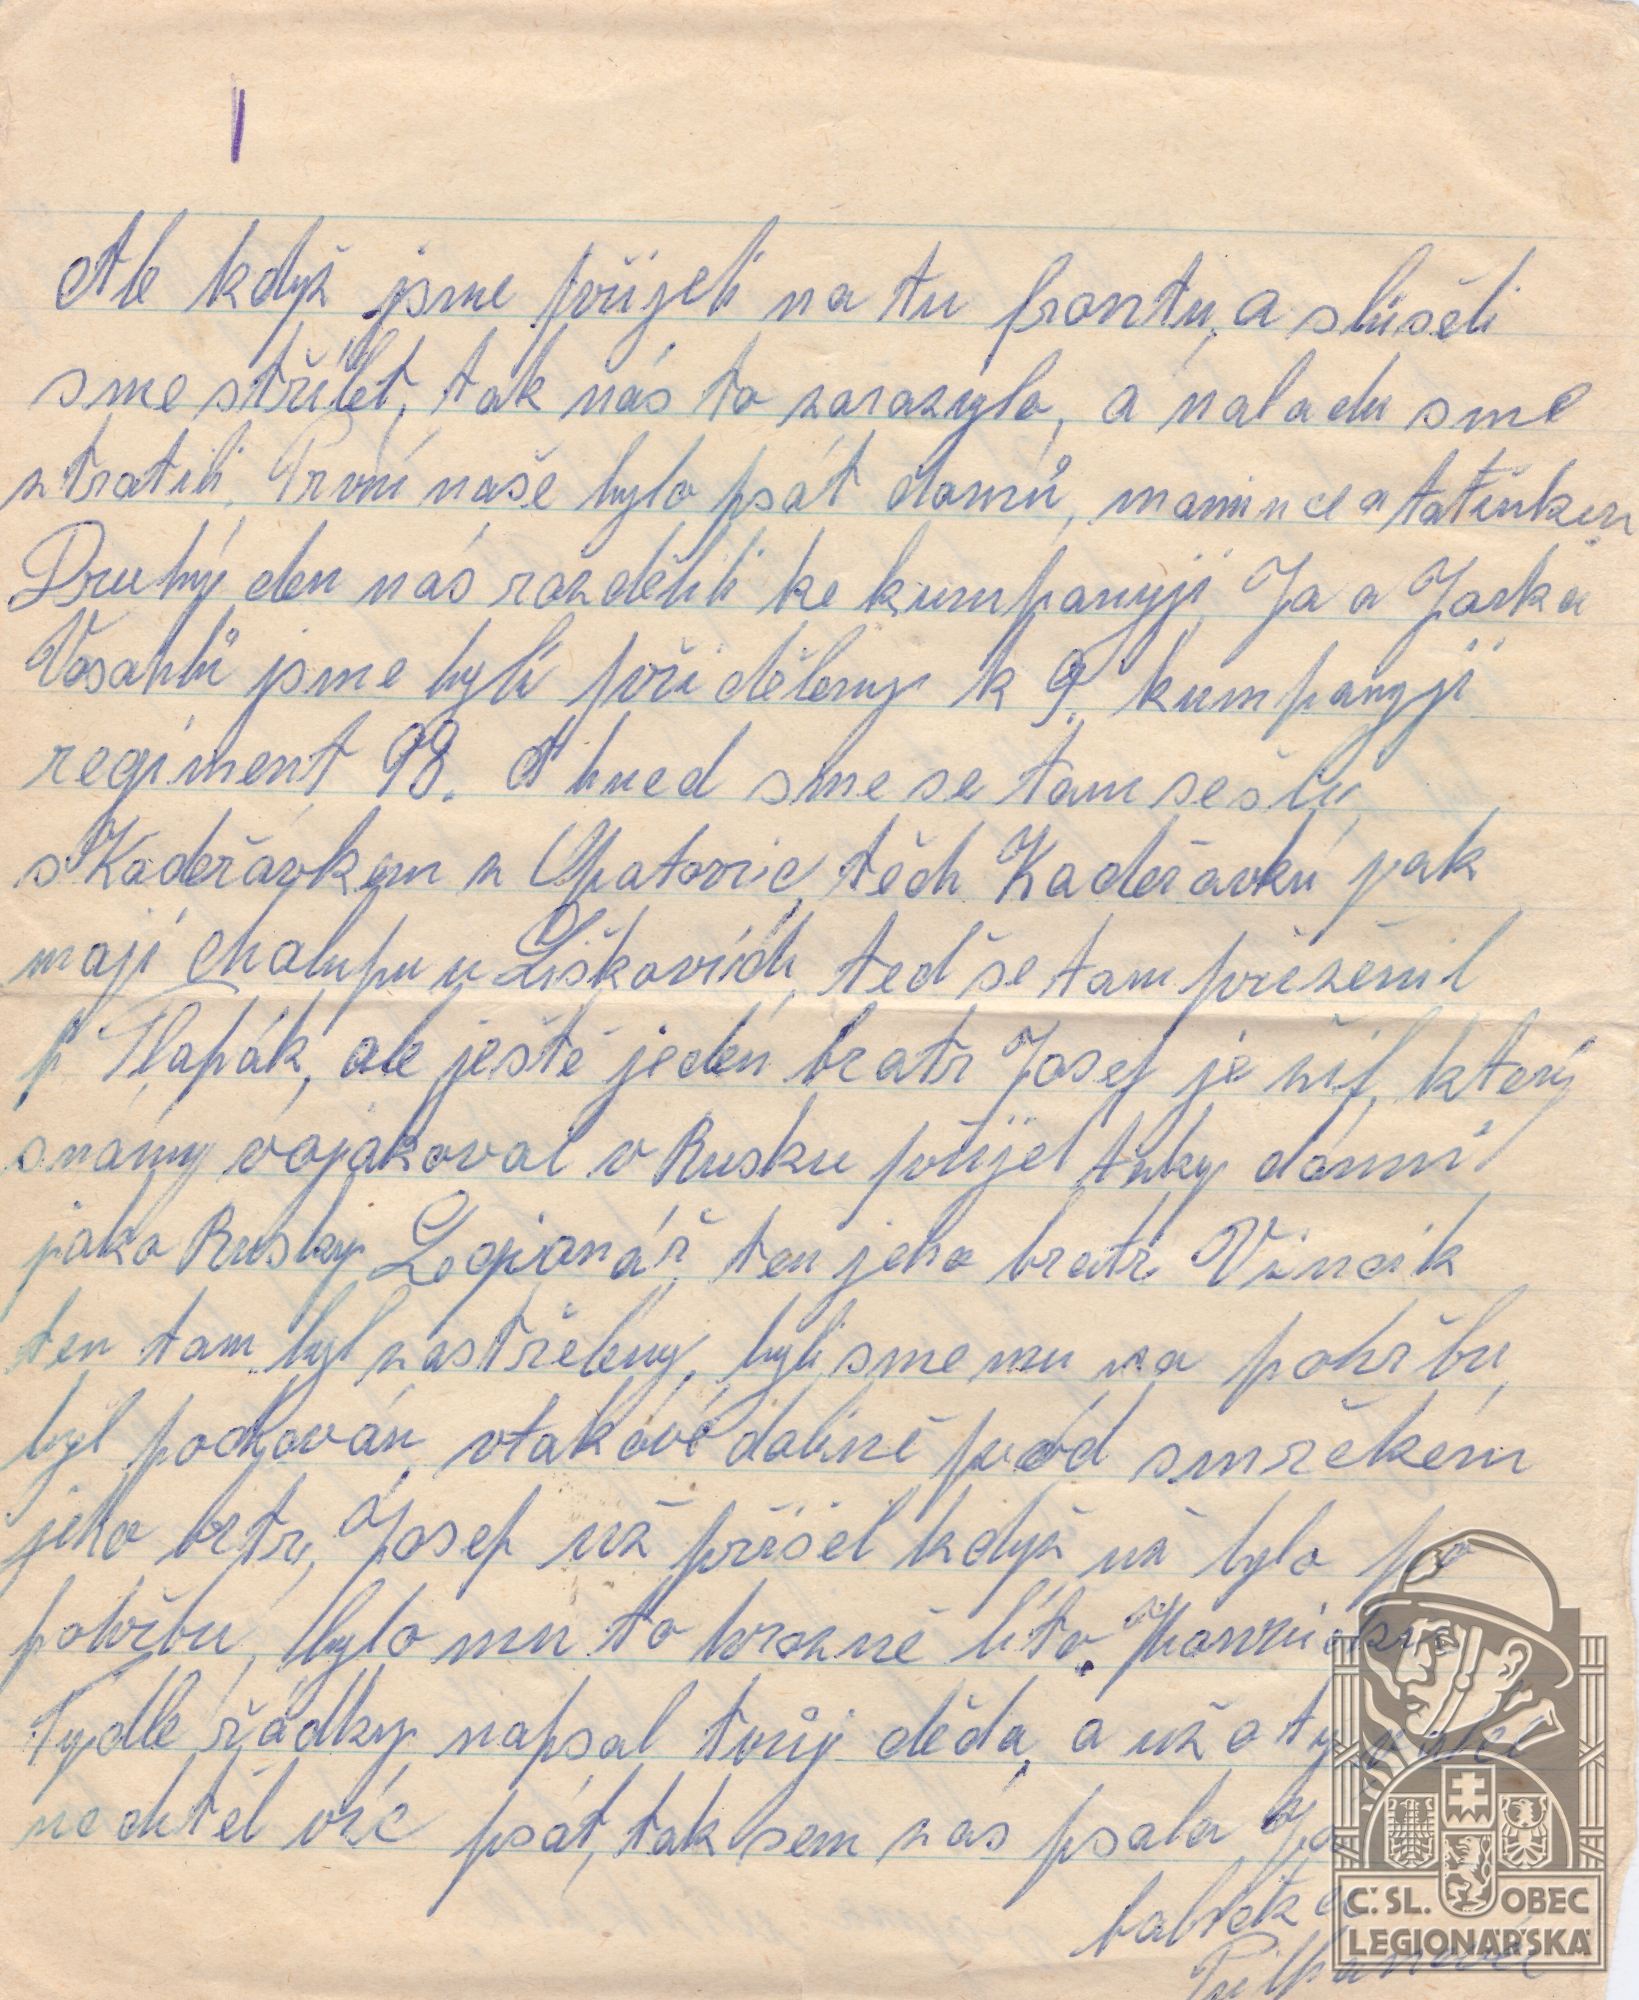 I
Ale když jsme přijeli na tu frontu, a slišeli
sme střílet, tak nás to zarazylo, a naladu sme
ztratili. První naše bylo psát domů, mamince a tatínku
Druhý den nás rozdělili ke kumpanyji Ja a Jarka
Vosahlů jsme byli přiděleny k 9. kumpanyji
regiment 98. A hned sme se tam sešli,
s Kadeřávkem z Opatovic, těch Kadeřávků pak
mají chalupu u Liškovích, teď se tam přiženil
p Tlapák, ale ještě jeden bratr Josef je žil, který
snámy vojákoval v Rusku přijel taky domů
jako Rusky Legionář, ten jeho bratr Vincik
ten tam byl zastřeleny, byli sme mu na pohřbu,
byl pochován vtakové dolině pod smrčkem
jeho brtr, Josef už přišel když už bylo po
pohřbu, bylo mu to hrozně líto.
Tydle řádky napsal tvůj děda, a už o ty
nechtěl víc psát, tak sem zas psala Ja
babička
C.SL. OBEC
LEGIONÁŘSKÁ